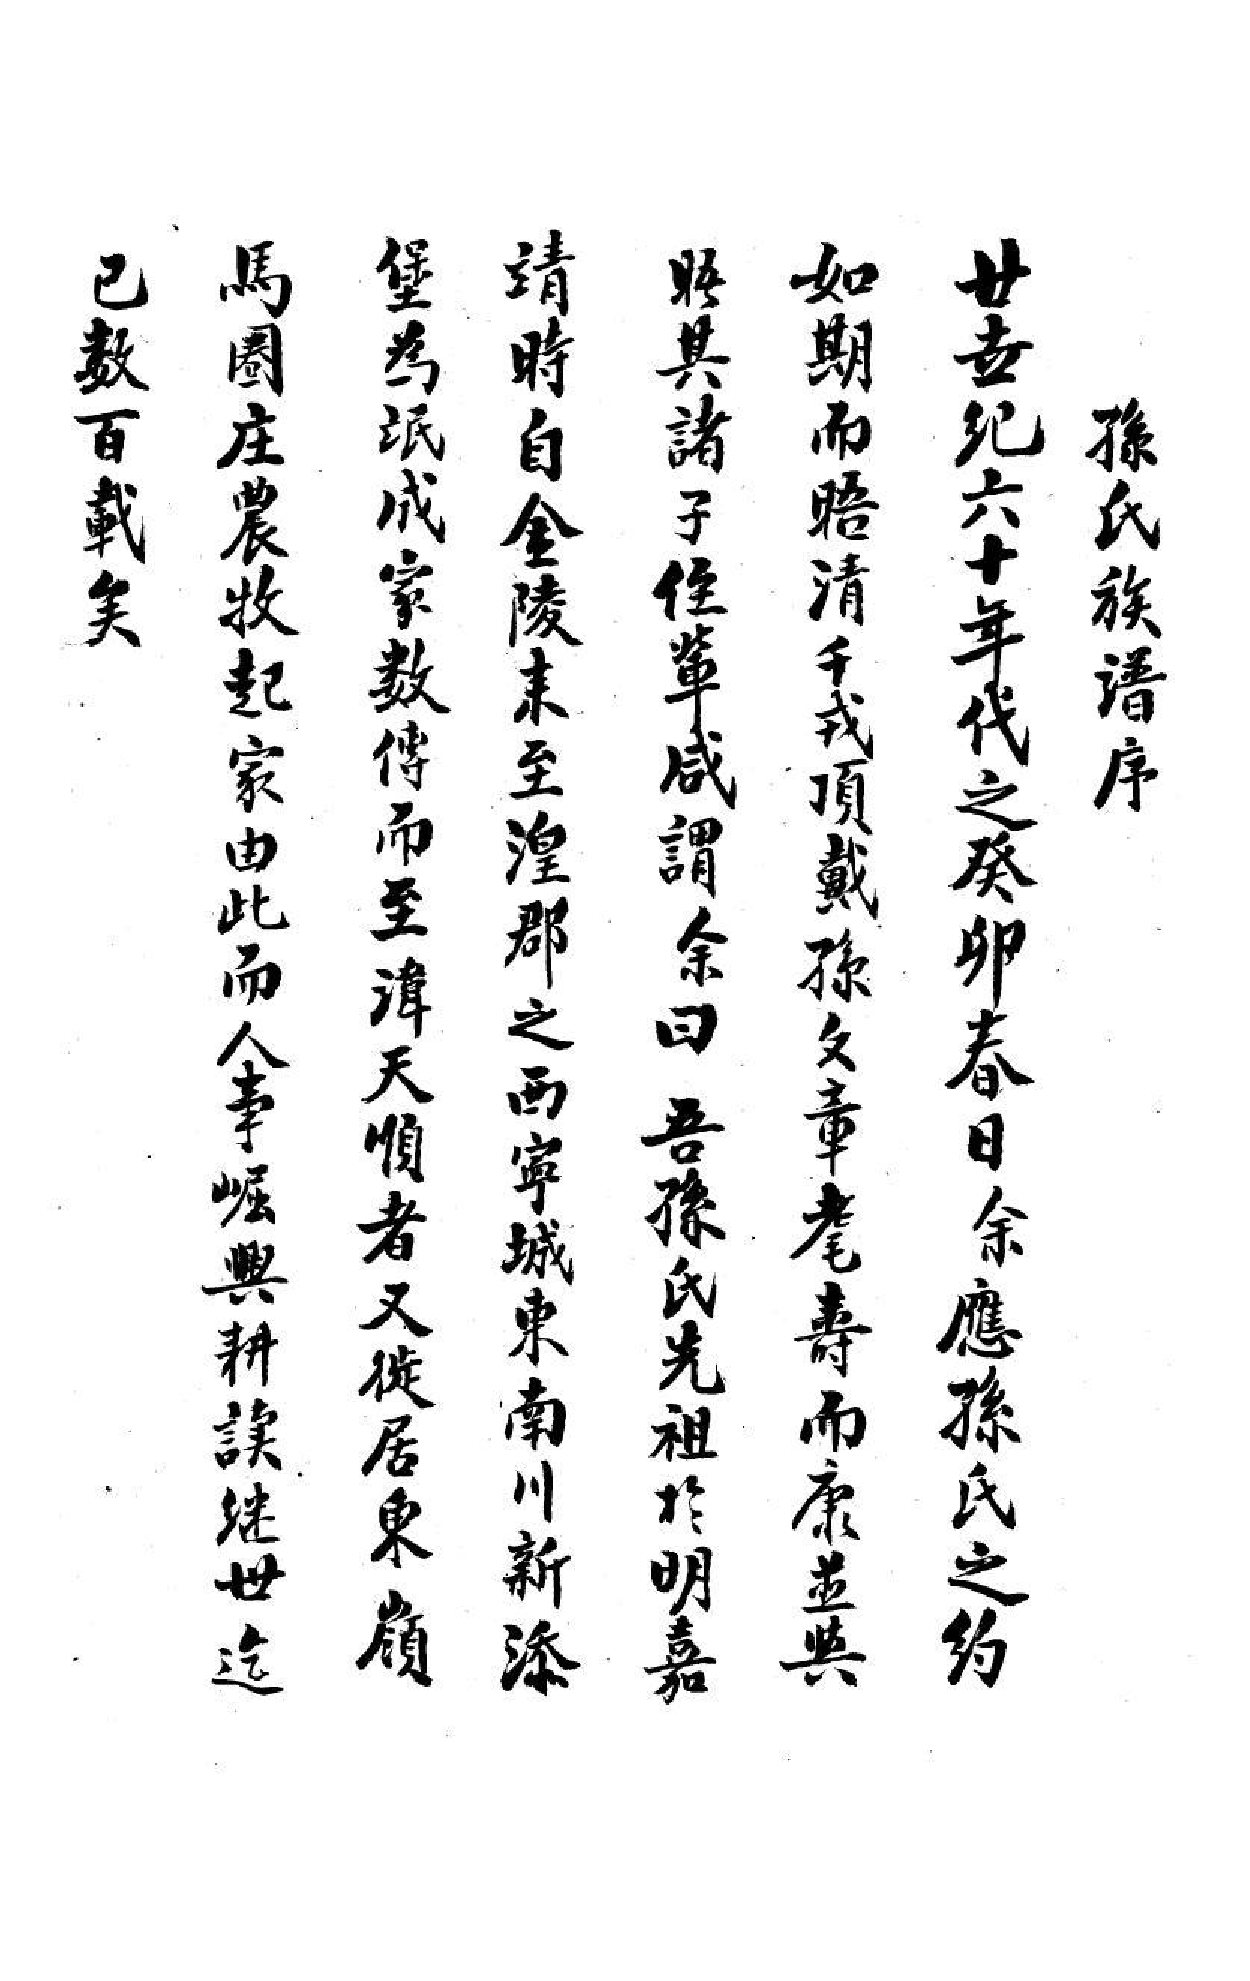 孫氏族譜序
廿世紀六十年代之癸卯春日余應孫氏之約
如期而晤清千戎頂戴孫文章耄壽而康並與
晤其諸子侄輩咸謂余曰 吾孫氏先祖於明嘉
靖時自金陵来至湟郡之西寧城東南川新添
堡為氓成家数傳而至諱天順者又徙居東嶺
馬圈庄農牧起家由此而人事崛興耕讀继世迄
已数百載矣